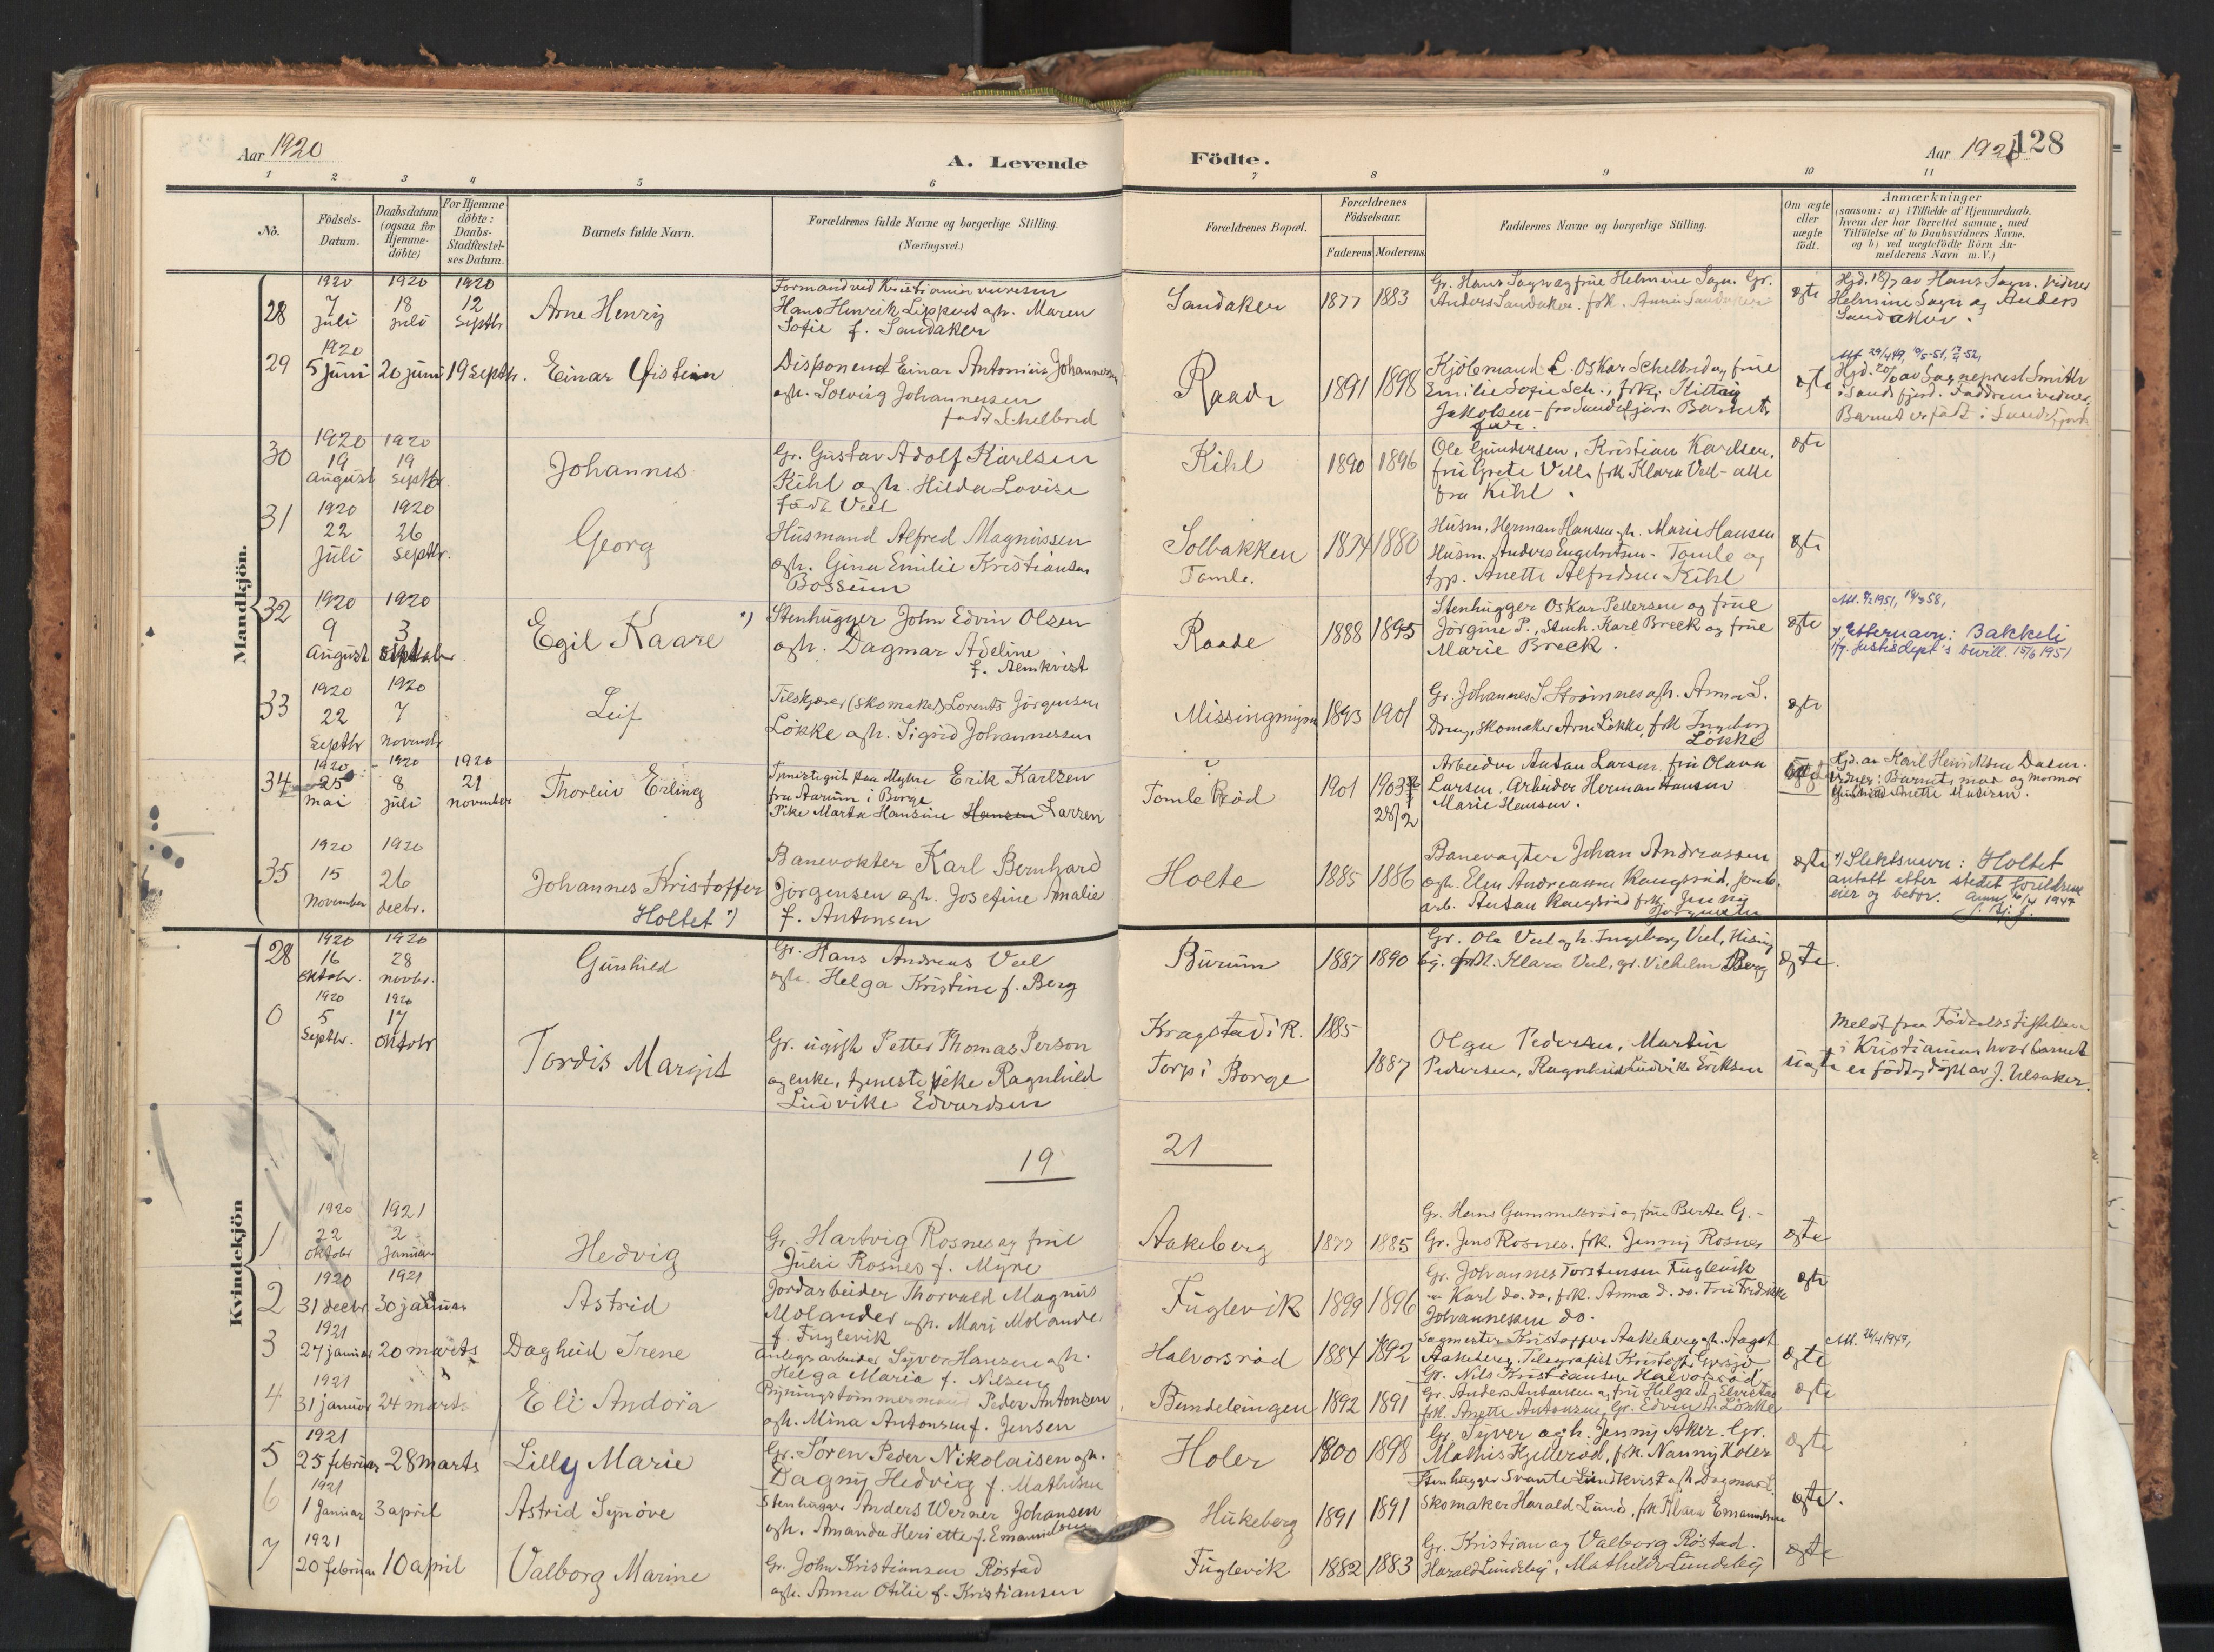 Aar 1920
A. Levende
Födte.
Aar 1920
128
1 2 3 4 5 6 7 8 9 10 11
No.
Födsels-
Datum.
Daabsdatum
(ogsaa for
Hjemme-
döbte)
For Hjemme
döbte:
Daabs-
Stadfæstel-
ses Datum.
Barnets fulde Navn.
Forældrenes fulde Navne og borgerlige Stilling.
(Næringsvei.)
Forældrenes Bopæl.
Forældrenes
Födselsaar.
Faderens Moderens
Faddernes Navne og borgerlige Stilling.
Om ægte
eller
uægte
födt.
Anmærkninger
(saasom: a) i Tilfælde af Hjemmedaab,
hvem der har forrettet samme, med
Tilföielse af to Daabsvidners Navne,
og b) ved uegtefödte Börn An-
melderens Navn m. V.)
Mandkjön.
28
1920 7 juli
1920 18 juli
1920 12 Septbr
Arne Henry
Formand ved Kristiania
Hans Henrik Lippert ogh. Maren
Sofie f. Sandaker
Sandaker
1877 1883
Gr. Hans Sagn og frue Helmine Sagn. Gr.
Anders Sandaker. frk. Anna Sandaker
egte
Hjd. 18/7 av Hans Sagn. Vidner
Helmine Sagn og Anders
Sandaker.
29
1920
5 juni 20 juni 19 Septbr.
Einar Øistein
Disponent Einar Antonius Johannessen
ogh. Solveig Johannessen
født Schelbred
Raade
1891 1898
Kjöbmand L. Oskar Schelbred og frue
Emilie Sofie Sch., frk. Kittaug
Jakobsen - fra Sandefjord. Barnets
far.
egte
Hjd. 20/6 av Sogneprest Smith
i Sandefjord. Faddrene vidner.
Barnet er født i Sandefjord
30
1920 19 august
1920 19 Septbr.
Johannes
Gr. Gustav Adolf Karlsen
Kihl ogh. Hilda Lovise
født Veel
Kihl
1890 1896
Ole Gundersen, Kristian Karlsen,
fru Grete Vell. frk. Klara Veel - alle
fra Kihl.
egte
31
1920 22 Juli
1920 26 Septbr.
Georg
Husmand Alfred Magnussen
ogh. Gina Emilie Kristiansen
Bossum
Solbakken
Tomle.
1874 1880
Husm. Herman Hansen ogh. Marie Hansen
Husm. Anders Engebretsen - Tomle og
tjp. Anette Alfredsen Kihl
egte
32
1920 9 August
1920 3 oktober
Egil Kaare *)
Stenhugger John Edvin Olsen
ogh. Dagmar Adeline
f. Almkvist
Raade
1888 1895
Stenhugger Oskar Pettersen og frue
Jörgine P., Stenh. Karl Breck og frue
Marie Breck.
egte
*) Etternavn: Bakkeli
ifg. Justisdept's bevill. 15/6 1951
33
1920 22 Septbr
1920 7 Novembr
Leif
Tilskjærer (Skomaker) Lorents Jörgensen
Løkke ogh. Sigrid Johannessen
Missingmyren
1893 1901
Gr. Johannes S. Strömnes ogh. Anna S.
Dreng. Skomaker Arne Løkke, frk Ingeborg
Løkke
egte
34
1920 25 mai
1920 8 juli
1920 21 november
Thorleiv Erling
Tjenestegut paa Mylne Erik Karlsen
fra Aarum i Borge
Pike Marta Hansine Hansen Larsen
Tomle Röd
1901 1903
28/2
Arbeider Anton Larsen, fru Olava
Larsen, Arbeider Herman Hansen
Marie Hansen.
Hjd. av Karl Henriksen Dalen.
Vidner: Barnets mor og mormor
35
1920 15 November
1920 26 decbr.
Johannes Kristoffer
Holtet *)
Banevokter Karl Bernhard
Jörgensen ogh. Josefine Amalie
f. Antonsen
Holte
1885 1886
Banevogter Johan Andreassen
ogh. Elen Andreassen Kaugsrud, Jernb.
arb. Anton Kaugsrud frk. Jenny
Jörgensen
egte
*) Slektsnavn: Holtet
antatt etter stedet foreldrene
eier og bebor.
Kvindekjön
28
1920 16 Oktobr.
1920 28 novbr.
Gunhild
Gr. Hans Andreas Veel
ogh. Helga Kristine f. Berg
Burum
1887 1890
Gr. Ole Veel ogh. Ingeborg Veel,
frk. Klara Veel, gr. Vilhelm Berg
egte.
0
1920 5 Septbr.
1920 17 Oktobr
Tordis Margit
Gr. ugift Petter Thomas Person
og enke, tjenestepike Ragnhild
Ludvike Edvardsen
Kragstad i R.
Torp i Borge
1885
1887
Olga Pedersen, Martin
Pedersen, Ragnhild Ludvike Eriksen
uegte
Meldt fra Födselsstiftelsen
i Kristiania hvor barnet
er født og döpt av J. Ulsaker.
19
21
1
1920 22 Oktobr
1921 2 Januar
Hedvig
Gr. Hartvig Rosnes og frue
Juli Rosnes f. Myre
Aakeberg
1877 1885
Gr. Hans Gammelsröd og frue Berta G. -
Gr. Jens Rosnes. frk. Jenny Rosnes
egte
2
1920 31 decbr.
1921 30 januar
Astrid
Jordarbeider Thorvald Magnus
Molander ogh. Mari Molander
f. Fuglevik
Fuglevik
1899 1896
Gr. Johannes Torstensen Fuglevik
" Karl do. do, frk. Anna d. do. Fru Fredrikke
Johannessen do.
egte
3
1921
27 januar 20 marts
Dagheid Irene
Anlegsarbeider Syver Hansen ogh.
Helga Maria f. Nilsen
Halvorsröd
1884 1892
Sagmester Kristoffer Aakeberg ogh. Aagot
Aakeberg. Telegrafist Kristoffer
Gr. Nils Kristiansen Halvorsröd
egte
Att. 26/4 1947,
4
1921
31 januar 24 marts
Eli Andora
Bygningstömmermand Peder Antonsen
ogh. Mina Antonsen f. Jensen
Bundeleingen
1892 1891
Gr. Anders Antonsen og fru Helga A.
frk. Anette Antonsen, Gr. Edvin A. Lökke
egte
5
1921
25 februar 28 marts
Lilly Marie
Gr. Sören Peder Nikolaisen ogh.
Dagny Hedvig f. Mathisen
Holer
1900 1898
Gr. Syver ogh. Jenny Aker. Gr.
Mathis Kjelleröd, frk. Nanny Holer
egte
6
1921
1 Januar 3 april
Astrid Synöve
Stenhugger Anders Werner Johansen
ogh. Amanda Henriette f. Emanuelsen
Hukeberg
1891 1891
Stenhugger Svante Lundkvist ogh. Dagmar L.
Skomaker Harald Lund, frk Klara Emanuelsen
egte.
7
1921
20 februar 10 april
Valborg Marine
Gr. John Kristiansen Röstad
ogh. Anna Otilie f. Kristiansen
Fuglevik
1882 1883
Gr. Kristian og Valborg Röstad.
Harald Lundeby, Mathilde Lundeby
egte